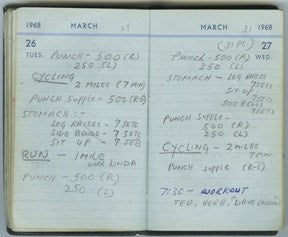 1968 MARCH
26
TUES. PUNCH - 500 (R)
250 (L)
CYCLING
2 MILES (7 MIN)
PUNCH SUPPLE - 500 (R-S)
STOMACH :-
LEG RAISES - 7 SETS
SIDE BENDS - 7 SETS
SIT UP - 7 SETS
RUN - 1 MILE
WITH LINDA
PUNCH - 500 (R)
250 (L)
MARCH 31 1968
27
WED.
PUNCH - 500 (R)
250 (L)
STOMACH - LEG RAISES
7 SETS
SIT UP
7 SETS
SIDE BENDS
7 SETS
PUNCH SUPPLE -
500 (R)
250 (L)
CYCLING - 2 MILES
7 MIN.
PUNCH SUPPLE (R-S)
7:30 - WORKOUT
TED, HERB, "DAVE